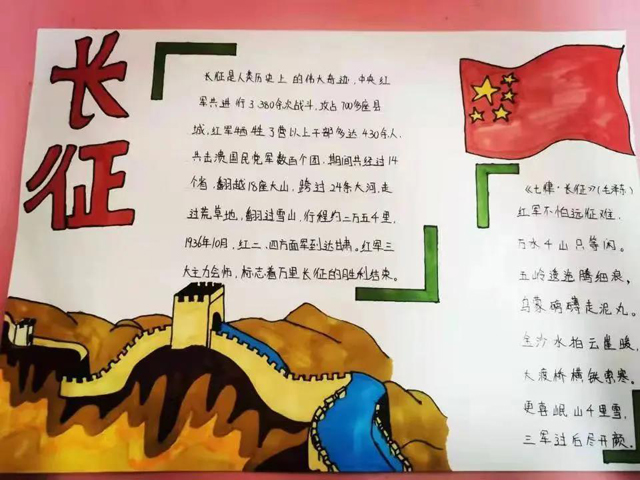 长征
长征是人类历史上的伟大奇迹，中央红
军共进行了380余次战斗，攻占700多座县
城，红军牺牲了营以上干部多达430余人，
共击溃国民党军数百个团，期间共经过14
个省，翻越18座大山，跨过24条大河，走
过荒草地，翻过雪山，行程约二万五千里，
1936年10月，红二、四方面军到达甘肃。红军三
大主力会师，标志着万里长征的胜利结束。
《七律·长征》（毛泽东）
红军不怕远征难，
万水千山只等闲。
五岭逶迤腾细浪，
乌蒙磅礴走泥丸。
金沙水拍云崖暖，
大渡桥横铁索寒。
更喜岷山千里雪，
三军过后尽开颜。